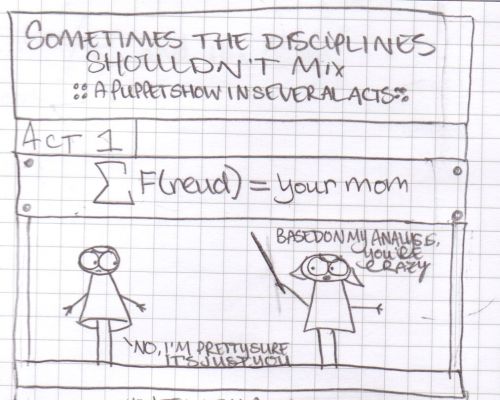 SOMETIMES THE DISCIPLINES
SHOULDN'T MIX
:: A PUPPET SHOW IN SEVERAL ACTS ::
ACT 1
∑ F(reud) = your mom
BASED ON MY ANALYSIS,
YOU'RE
CRAZY
NO, I'M PRETTY SURE
IT'S JUST YOU